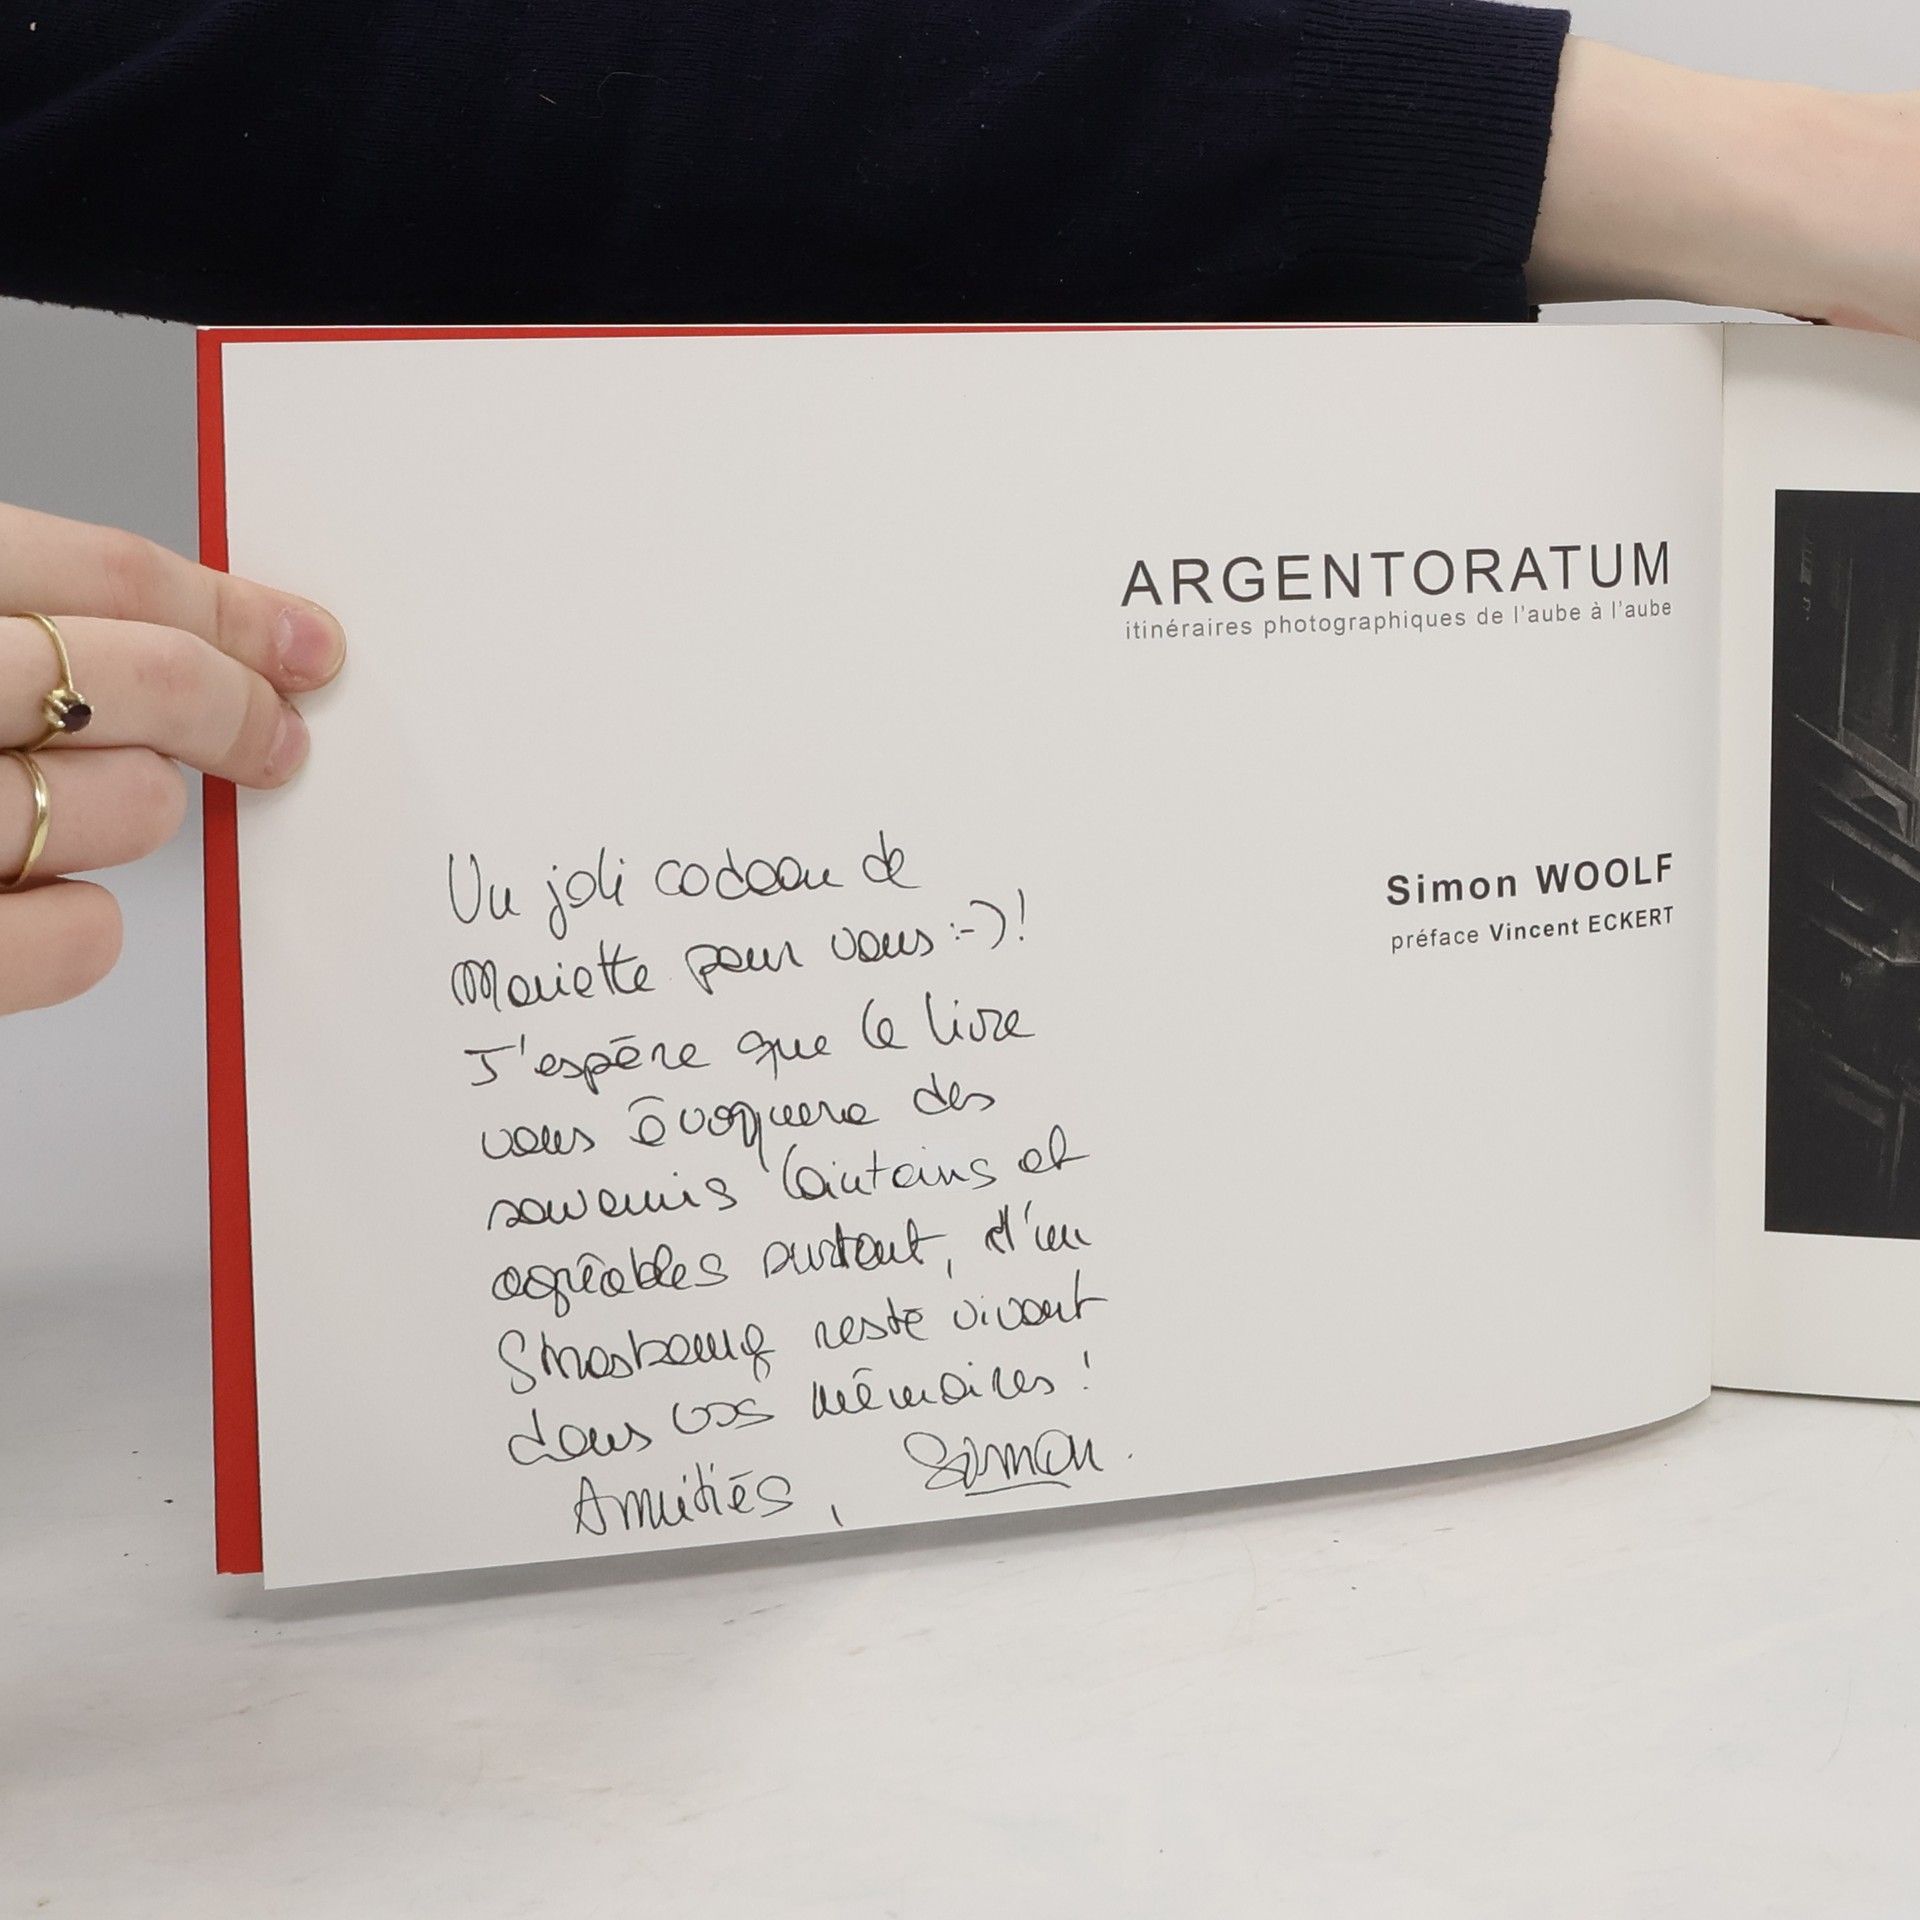 ARGENTORATUM
itinéraires photographiques de l'aube à l'aube
Simon WOOLF
préface Vincent ECKERT
Un joli cadeau de
Mariette pour vous :-)!
J'espère que le livre
vous évoquera des
souvenirs lointains et
agréables surtout, d'un
Strasbourg resté vivant
dans vos mémoires !
Amitiés, Simon.